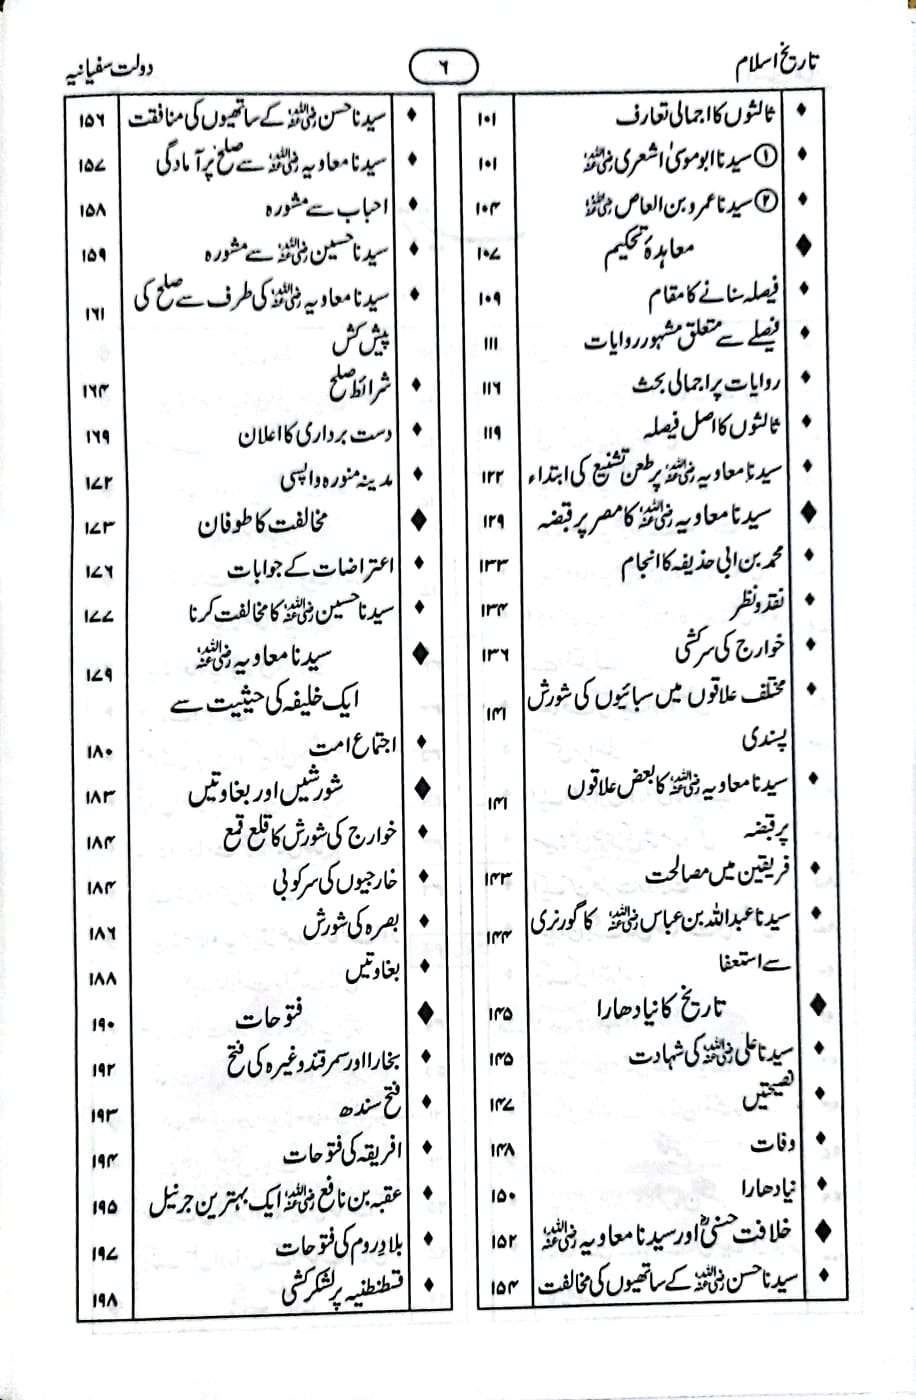 تاریخ اسلام
۶
دولت سفیانیہ
♦ ثالثوں کا اجمالی تعارف ۱۰۱
♦ ① سیدنا ابو موسیٰ اشعری رضی اللہ عنہ ۱۰۱
♦ ② سیدنا عمرو بن العاص رضی اللہ عنہ ۱۰۴
◆ معاہدۂ تحکیم ۱۰۷
♦ فیصلہ سنانے کا مقام ۱۰۹
♦ فیصلے سے متعلق مشہور روایات ۱۱۱
♦ روایات پر اجمالی بحث ۱۱۶
♦ ثالثوں کا اصل فیصلہ ۱۱۹
♦ سیدنا معاویہ رضی اللہ عنہ پر طعن تشنیع کی ابتداء ۱۲۲
◆ سیدنا معاویہ رضی اللہ عنہ کا مصر پر قبضہ ۱۲۹
♦ محمد بن ابی حذیفہ کا انجام ۱۳۳
♦ نقد و نظر ۱۳۴
♦ خوارج کی سرکشی ۱۳۶
♦ مختلف علاقوں میں سبائیوں کی شورش ۱۴۱
پسندی
♦ سیدنا معاویہ رضی اللہ عنہ کا بعض علاقوں ۱۴۱
پر قبضہ
♦ فریقین میں مصالحت ۱۴۳
♦ سیدنا عبداللہ بن عباس رضی اللہ عنہ کا گورنری ۱۴۴
سے استعفا
◆ تاریخ کا نیا دھارا ۱۴۵
♦ سیدنا علی رضی اللہ عنہ کی شہادت ۱۴۵
♦ نصیحتیں ۱۴۷
♦ وفات ۱۴۸
♦ نیا دھارا ۱۵۰
◆ خلافت حسنیؓ اور سیدنا معاویہ رضی اللہ عنہ ۱۵۲
♦ سیدنا حسن رضی اللہ عنہ کے ساتھیوں کی مخالفت ۱۵۴
♦ سیدنا حسن رضی اللہ عنہ کے ساتھیوں کی منافقت ۱۵۶
♦ سیدنا معاویہ رضی اللہ عنہ سے صلح پر آمادگی ۱۵۷
♦ احباب سے مشورہ ۱۵۸
♦ سیدنا حسین رضی اللہ عنہ سے مشورہ ۱۵۹
♦ سیدنا معاویہ رضی اللہ عنہ کی طرف سے صلح کی ۱۶۱
پیش کش
♦ شرائط صلح ۱۶۴
♦ دست برداری کا اعلان ۱۶۹
♦ مدینہ منورہ واپسی ۱۷۲
◆ مخالفت کا طوفان ۱۷۳
♦ اعتراضات کے جوابات ۱۷۶
♦ سیدنا حسین رضی اللہ عنہ کا مخالفت کرنا ۱۷۷
◆ سیدنا معاویہ رضی اللہ عنہ ۱۷۹
ایک خلیفہ کی حیثیت سے
♦ اجتماع امت ۱۸۰
◆ شورشیں اور بغاوتیں ۱۸۳
♦ خوارج کی شورش کا قلع قمع ۱۸۴
♦ خارجیوں کی سرکوبی ۱۸۴
♦ بصرہ کی شورش ۱۸۶
♦ بغاوتیں ۱۸۸
◆ فتوحات ۱۹۰
♦ بخارا اور سمرقند وغیرہ کی فتح ۱۹۲
♦ فتح سندھ ۱۹۳
♦ افریقہ کی فتوحات ۱۹۴
♦ عقبہ بن نافع رضی اللہ عنہ ایک بہترین جرنیل ۱۹۵
♦ بلادِ روم کی فتوحات ۱۹۷
♦ قسطنطنیہ پر لشکر کشی ۱۹۸